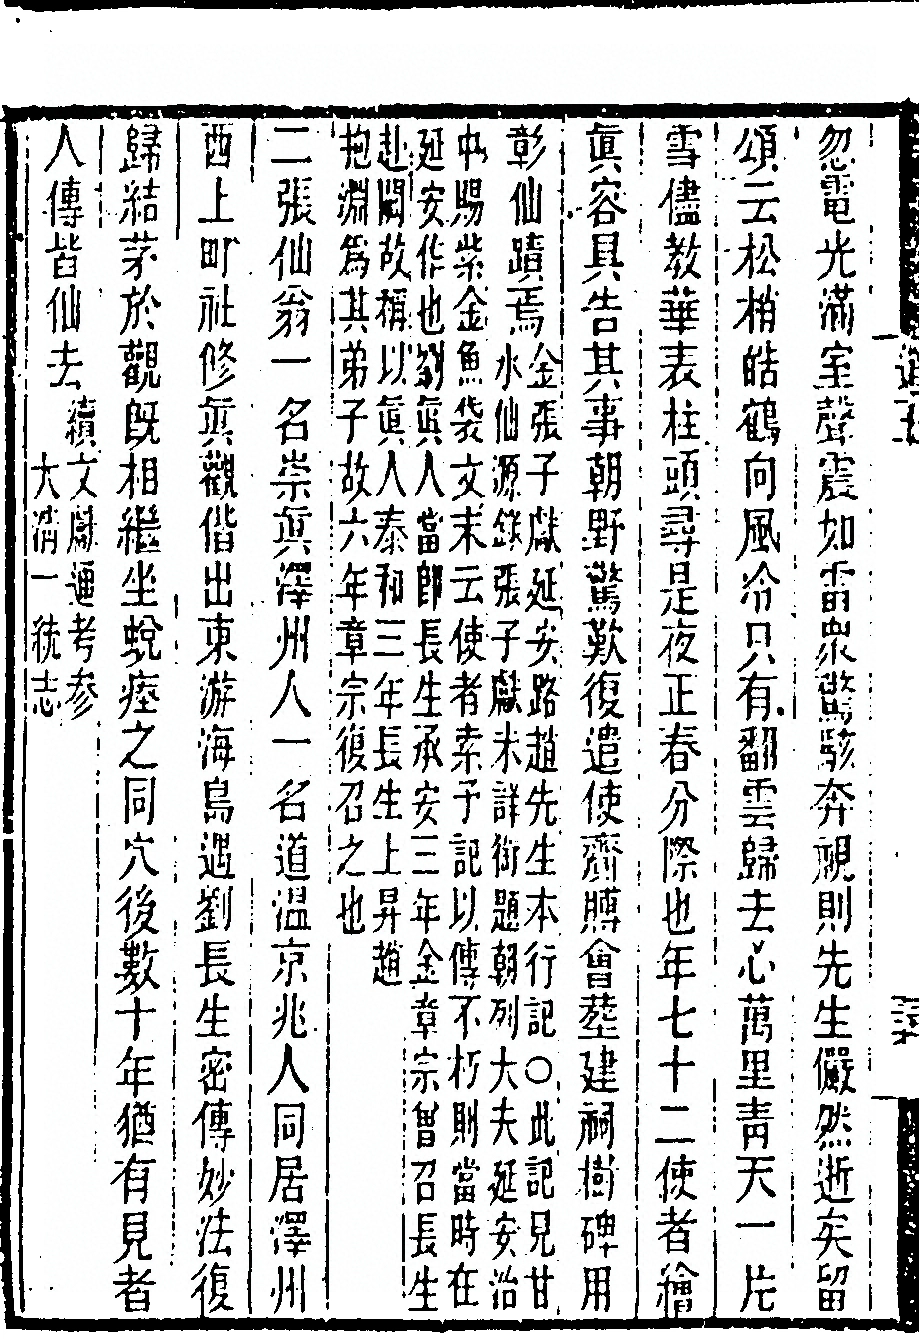 忽電光滿室聲震如雷衆驚駭奔視則先生儼然逝矣留
頌云松梢皓鶴向風冷只有翻雲歸去心萬里靑天一片
雪儘教華表柱頭尋是夜正春分際也年七十二使者繪
眞容具告其事朝野驚歎復遣使齎賻會塟建祠樹碑用
彰仙蹟焉
金張子獻延安路趙先生本行記○此記見甘
水仙源錄張子獻未詳銜題朝列大夫延安治
中賜紫金魚袋文末云使者索予記以傳不朽則當時在
延安作也劉眞人當卽長生承安三年金章宗曾召長生
赴闕故稱以眞人泰和三年長生上昇趙
抱淵爲其弟子故六年章宗復召之也
二張仙翁一名崇眞澤州人一名道温京兆人同居澤州
西上町社修眞觀偕出東游海島遇劉長生密傳妙法復
歸結茅於觀既相繼坐蛻瘞之同穴後數十年猶有見者
人傳皆仙去
續文獻通考參
大淸一統志